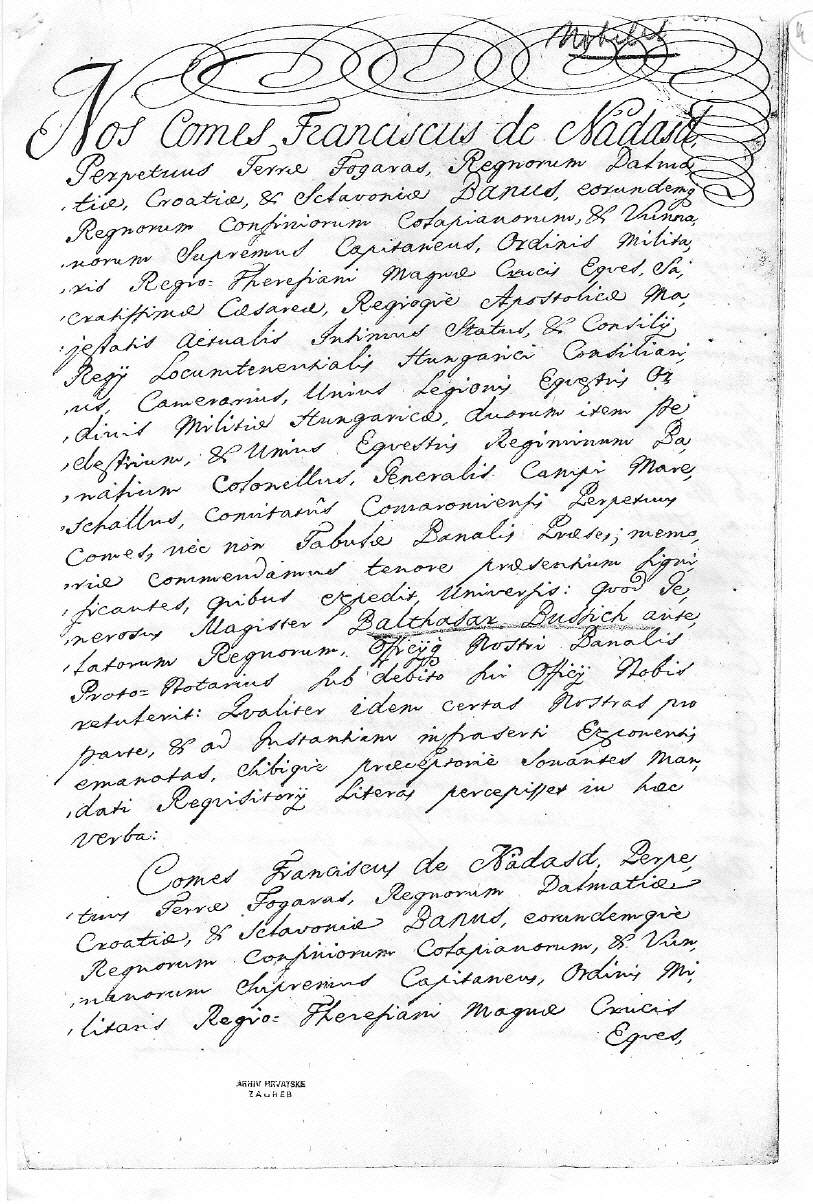 Nobilit
4
Nos Comes Franciscus de Nádasd,
Perpetuus Terræ Fogaras, Regnorum Dalma,
,tiæ, Croatiæ, & Sclavoniæ Banus, eorundemq
Regnorum Confiniorum Colapianorum, & Vunna,
,norum Supremus Capitaneus, Ordinis Milita,
,ris Regio= Theresiani Magnæ Crucis Eqves, Sa,
,cratissimæ Cæsareæ, Regioqve Apostolicæ Ma,
,jestatis Actualis Intimus Status, & Consilij
Regij Locumtenentialis Hungarici Consiliari,
,us, Camerarius, Unius Legionis Eqvestris Or,
,dinis Militiæ Hungaricæ, duorum item Pe,
,destrium, & Unius Eqvestris Regiminum Ba,
,natium Colonellus, Generalis Campi Mare,
,schallus, Comitatûs Comaromiensis Perpetuus
Comes, nèc nòn Tabulæ Banalis Præses; memo,
,riæ commendamus tenore præsentium signi,
,ficantes, qvibus expedit, Universis: qvod Ge,
,nerosus Magister Balthasar Bussich ante,
,latorum Regnorum, Officijq Nostri Banalis
Proto= Notarius sub debito sui Officij Nobis
retulerit: Qvaliter idem certas Nostras pro
parte, & ad Instantiam infraserti Exponentis
emanatas, sibiqvè præceptoriè sonantes Man,
,dati Reqvisitorij Literas percepisset in hæc
verba:
Comes Franciscus de Nádasd, Perpe,
,tuus Terræ Fogaras, Regnorum Dalmatiæ
Croatiæ, & Sclavoniæ Banus, eorundemqvè
Regnorum Confiniorum Colapianorum, & Vun,
,nanorum Supremus Capitaneus, Ordinis Mi,
,litaris Regio= Theresiani Magnæ Crucis
Eqves,
ARHIV HRVATSKE
ZAGREB